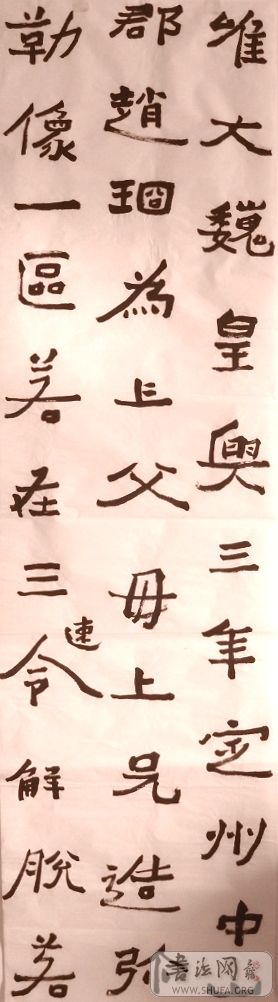 唯大魏皇興三年定州中
郡趙為亡父母上兄造弥
勒像一區若在三速令解脫若
法网
WWW.SHUFA.ORG